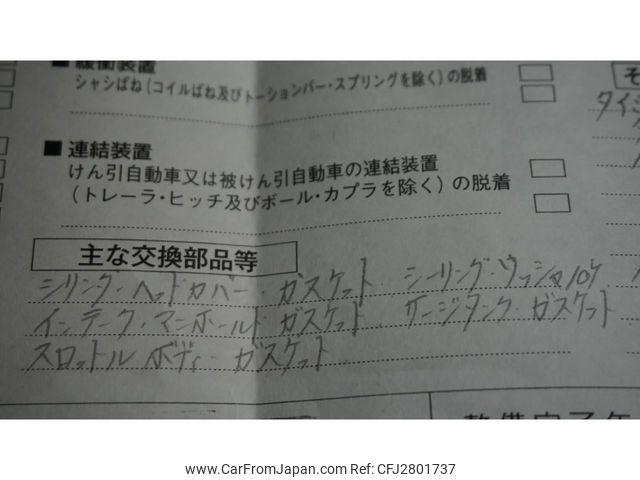 緩衝装置
シャシばね(コイルばね及びトーションバー・スプリングを除く)の脱着
■ 連結装置
けん引自動車又は被けん引自動車の連結装置
(トレーラ・ヒッチ及びボール・カプラを除く)の脱着
主な交換部品等
シリンダ・ヘッドカバー・ガスケット シーリング・ワッシャ10ケ
インテーク・マニホールド ガスケット サージタンク・ガスケット
スロットル ボディ・ガスケット
www.CarFromJapan.com - CFJ2801737